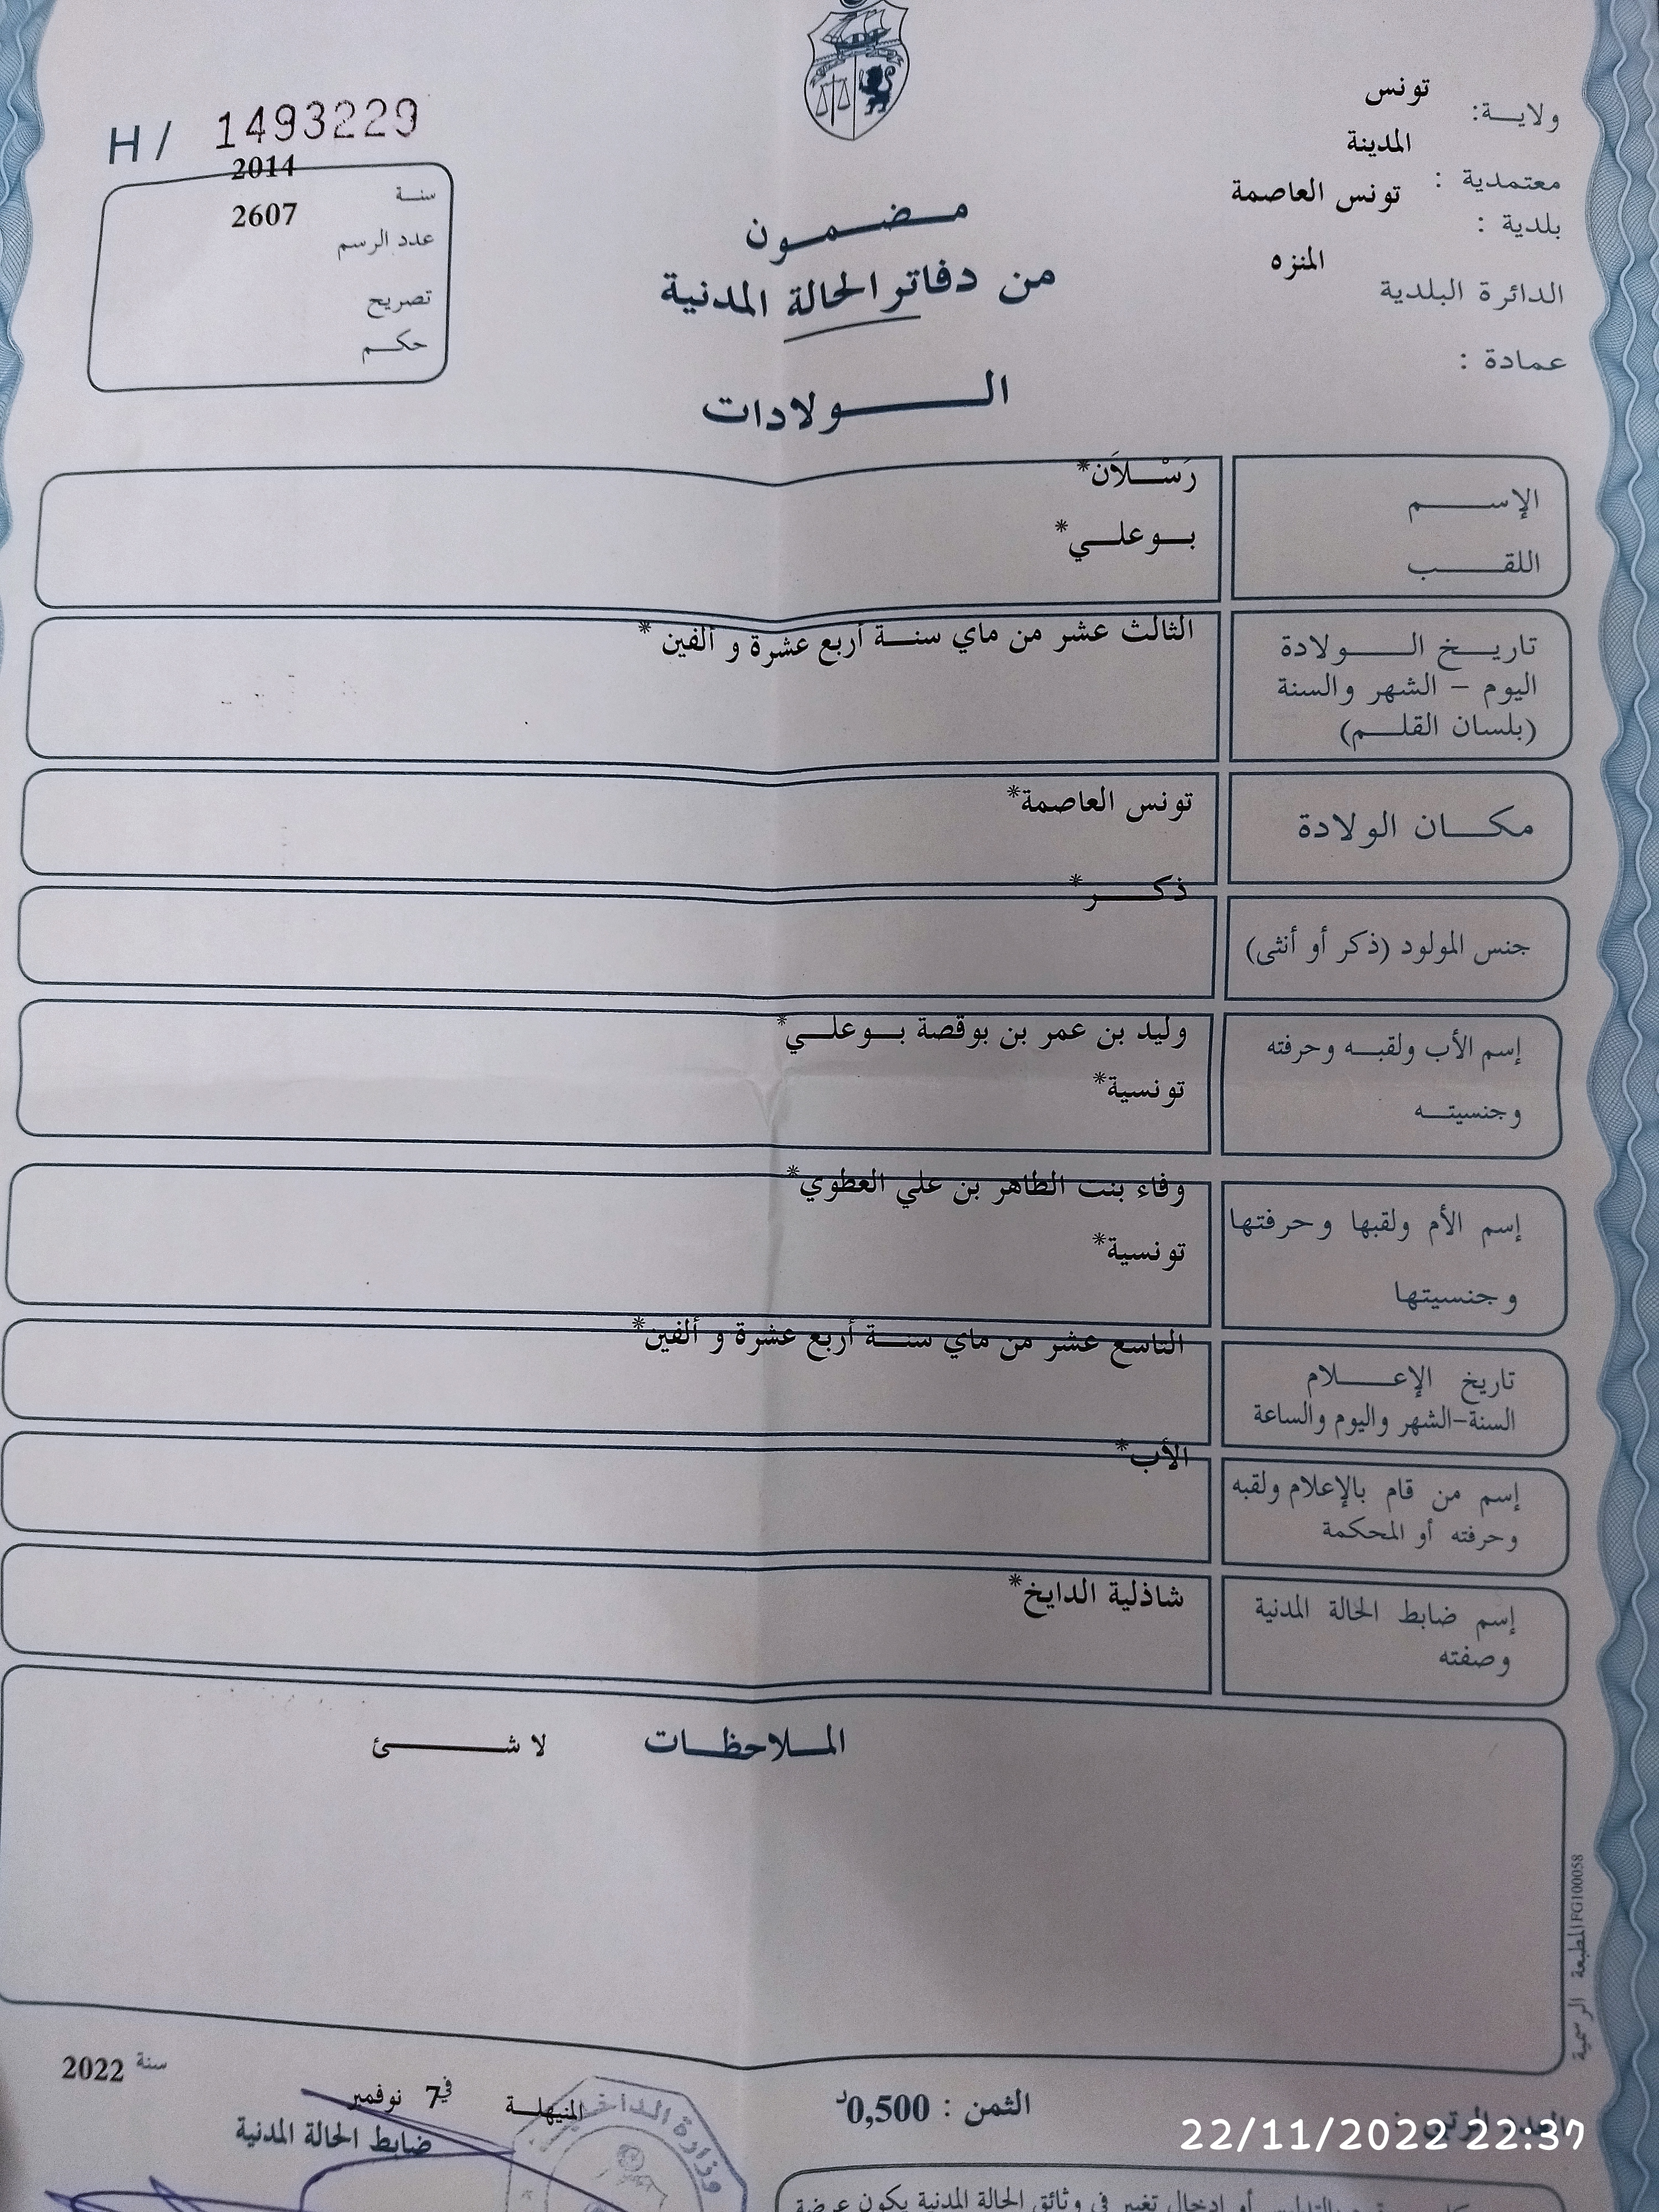 ولاية: تونس
معتمدية : المدينة
بلدية : تونس العاصمة
الدائرة البلدية المنزه
عمادة :
H/ 1493229
سنة 2014
عدد الرسم 2607
تصريح
حكم
مضمون
من دفاتر الحالة المدنية
الولادات
الإسم رَسْلاَن*
اللقب بوعلي*
تاريخ الولادة الثالث عشر من ماي سنة أربع عشرة و ألفين *
اليوم – الشهر والسنة
(بلسان القلم)
مكان الولادة تونس العاصمة*
جنس المولود (ذكر أو أنثى) ذكر*
إسم الأب ولقبه وحرفته وليد بن عمر بن بوقصة بوعلي*
وجنسيته تونسية*
إسم الأم ولقبها وحرفتها وفاء بنت الطاهر بن علي العطوي*
وجنسيتها تونسية*
تاريخ الإعلام التاسع عشر من ماي سنة أربع عشرة و ألفين*
السنة-الشهر واليوم والساعة
إسم من قام بالإعلام ولقبه الأب*
وحرفته أو المحكمة
إسم ضابط الحالة المدنية شاذلية الدايخ*
وصفته
الملاحظات لا شئ
المطبعة الرسمية FG100058
المنيهلة في 7 نوفمبر سنة 2022
ضابط الحالة المدنية
وزارة الداخ
الثمن : 0,500د
22/11/2022 22:37
أو إدخال تغيير في وثائق الحالة المدنية يكون عرضة